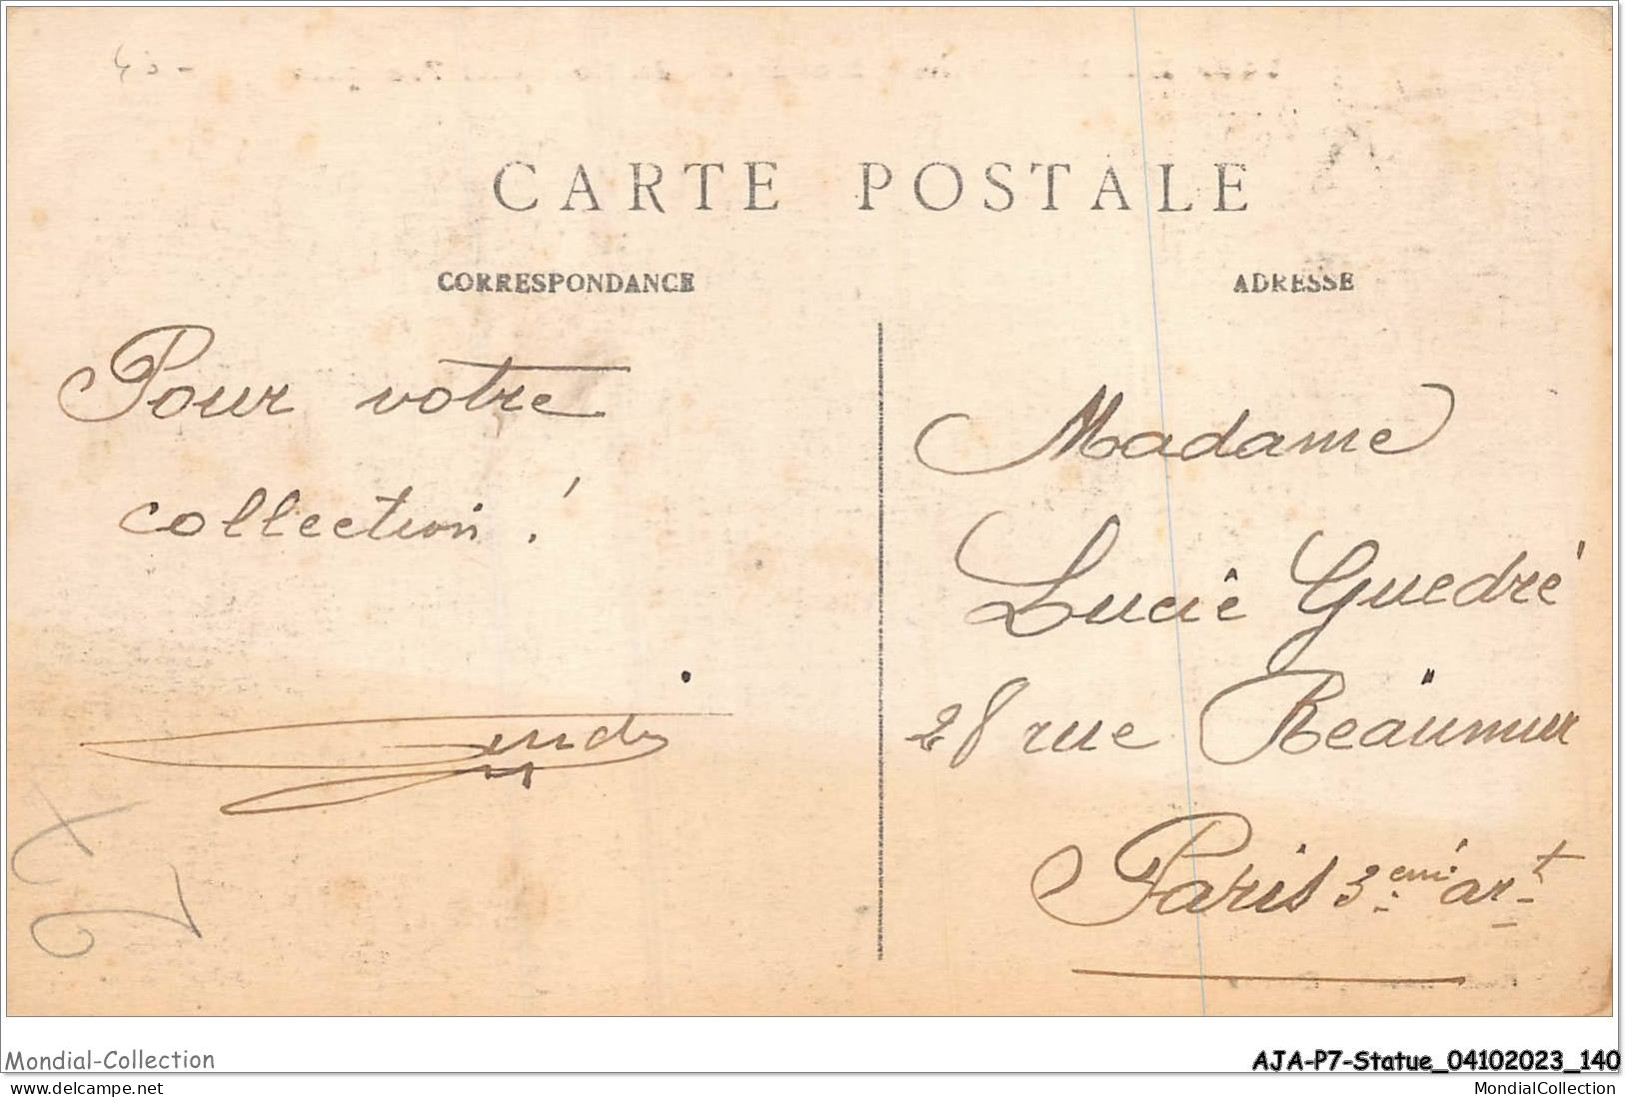 CARTE POSTALE
CORRESPONDANCE
ADRESSE
Pour votre
collection !
Madame
Lucie Guedré
28 rue Reaümur
Paris 3eme art
Mondial-Collection
AJA-P7-Statue_04102023_140
www.delcampe.net
MondialCollection